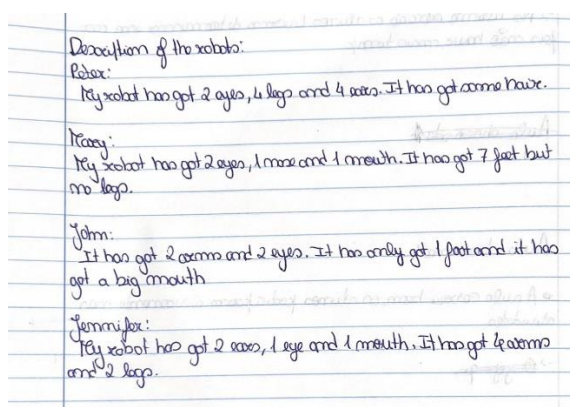 Description of the robots:
Peter:
My robot has got 2 eyes, 4 legs and 4 ears. It has got some hair.
Mary:
My robot has got 2 eyes, 1 nose and 1 mouth. It has got 7 feet but
no legs.
John:
It has got 2 arms and 2 eyes. It has only got 1 foot and it has
got a big mouth
Jennifer:
My robot has got 2 ears, 1 eye and 1 mouth. It has got 4 arms
and 2 legs.